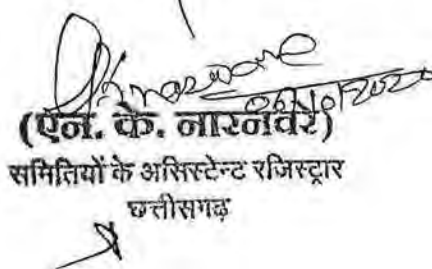 (एन. के. नारनवरे)
समितियों के असिस्टेन्ट रजिस्ट्रार
छत्तीसगढ़